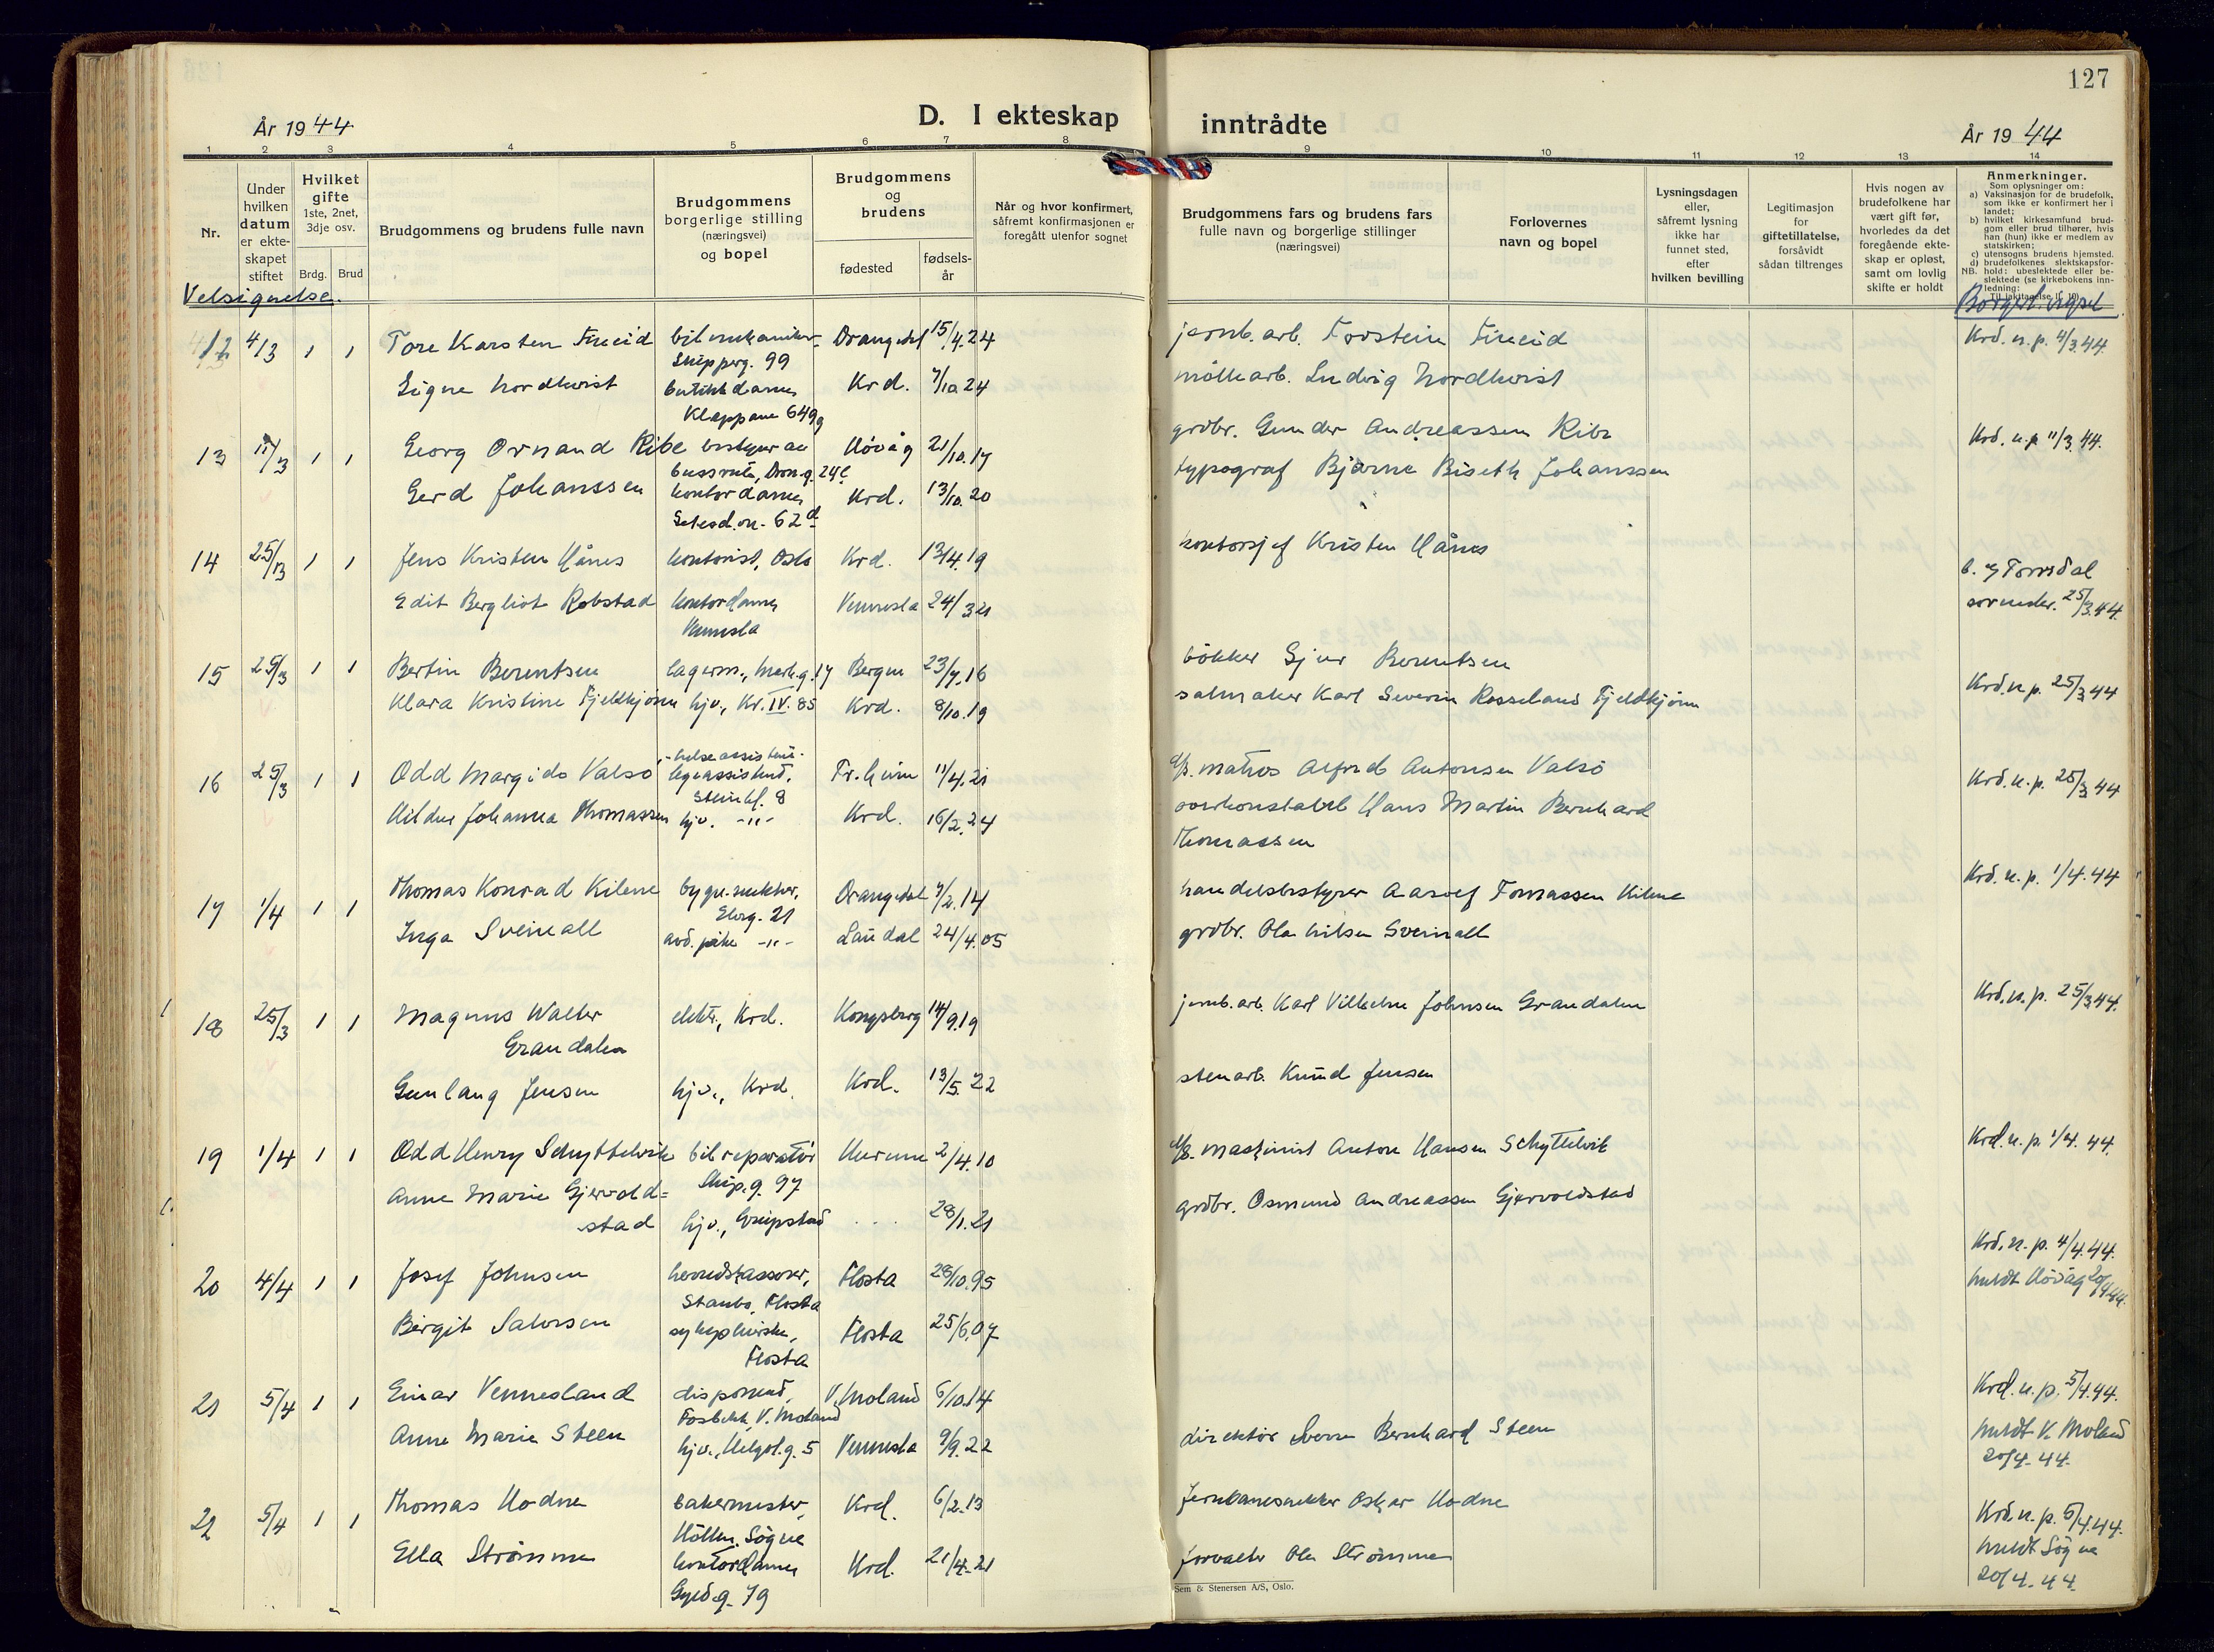 127
År 1944
D. I ekteskap
inntrådte
År 1944
1 2 3 4 5 6 7 8 9 10 11 12 13 14
Nr.
Under hvilken datum er ekteskapet stiftet
Hvilket gifte
1ste, 2net, 3dje osv.
Brdg. Brud
Brudgommens og brudens fulle navn
Brudgommens borgerlige stilling (næringsvei) og bopel
Brudgommens og brudens
fødested
fødselsår
Når og hvor konfirmert, såfremt konfirmasjonen er foregått utenfor sognet
Brudgommens fars og brudens fars fulle navn og borgerlige stillinger (næringsvei)
Forlovernes navn og bopel
Lysningsdagen eller, såfremt lysning ikke har funnet sted, efter hvilken bevilling
Legitimasjon for giftetillatelse, forsåvidt sådan tiltrenges
Hvis nogen av brudefolkene har vært gift før, hvorledes da det foregående ekteskap er opløst, samt om lovlig skifte er holdt
Anmerkninger.
Som oplysninger om:
a) Vaksinasjon for de brudefolk, som ikke er konfirmert her i landet;
b) hvilket kirkesamfund brudgom eller brud tilhører, hvis han (hun) ikke er medlem av statskirken;
c) utensogns brudens hjemsted.
d) brudefolkenes slektskapsforhold: ubeslektede eller beslektede (se kirkebokens innledning:
NB.
Velsignelse.
Borgerl. vigsel
12 4/3 1 1 Tore Karsten Fineid bilmekaniker Drangedal 15/4.24 jernb.arb. Torstein Fineid Krd. n.p. 4/3.44.
Skipperg. 99
Signe Nordkvist butikkdame Krd. 7/10.24 møllearb. Ludvig Nordkvist
Klappane 649
13 11/3 1 1 Georg Ornand Ribe bestyrer av Høvåg 21/10.17 grdbr. Gunder Andreassen Ribe Krd. n.p. 11/3.44.
bussrute, Dron.g. 24
Gerd Johanssen kontordame Krd. 13/10.20 typograf Bjarne Biseth Johanssen
Setesd.v. 62
14 25/3 1 1 Jens Kristen Hånes kontorist, Oslo Krd. 13/4.19 kontorsjef Kristen Hånes
Edit Bergliot Robstad kontordame Vennesla 24/3.21
Vennesla
sorenskr. 25/3.44.
15 25/3 1 1 Bertin Berentsen lagerm., Mark.g. 17 Bergen 23/7.16 bøkker Sjur Berentsen Krd. n.p. 25/3.44
Klara Kristine Fjeldkjønn hjv., Kr.IV. 85 Krd. 8/10.19 salmaker Karl Severin Rosseland Fjeldkjønn
16 25/3 1 1 Odd Margido Valsø helseassistent Tr.heim 11/4.21 matros Alfred Antonsen Valsø Krd. n.p. 25/3.44
legeassistent,
Steinkl. 8
Hildur Johanna Thomassen hjv. -"- Krd. 16/2.24 overkonstabel Hans Martin Bernhard
Thomassen
17 1/4 1 1 Thomas Konrad Kilene bygn.snekker, Drangedal 7/2.14 handelsbestyrer Aasolf Tomassen Kilene Krd. n.p. 1/4.44
Elvg. 21
Inga Sveinall -"- Laudal 24/4.05 grdbr. Ola Nilsen Sveinall
18 25/3 1 1 Magnus Walter elektr., Krd. Kongsberg 14/9.19 jernb.arb. Karl Vilhelm Johnsen Grandalen Krd. n.p. 25/3.44.
Grandalen
Gunlaug Jensen hjv., Krd. Krd. 13/5.22 stenarb. Knud Jensen
19 1/4 1 1 Odd Henry Schyttelvik bilreparatør Hurum 2/4.10 maskinist Anton Hansen Schyttelvik Krd. n.p. 1/4.44.
Skip.g. 97
Anne Marie Gjervold=
stad hjv., Greipstad . . . . 28/1.21 grdbr. Osmund Andreassen Gjervoldstad
20 4/4 1 1 Josef Johnsen herredskasserer, Flosta 28/10.95 Krd. n.p. 4/4.44.
Staubø, Flosta meldt Høvåg 20/4.44.
Birgit Salvesen sykepleierske, Flosta 25/6.07
Flosta
21 5/4 1 1 Einar Vennesland disponent, V. Moland 6/10.14 Krd. n.p. 5/4.44.
Fosbekk V. Moland
Anne Marie Steen hjv., Helgol.g. 5 Vennesla 9/9.22 direktør Sverre Bernhard Steen meldt V. Moland
20/4.44.
22 5/4 1 1 Thomas Hodne bakermester, Krd. 6/2.13 Jernbanesnekker Oskar Hodne Krd. n.p. 5/4.44.
Höllen, Søgne
Ella Strømme kontordame Krd. 21/4.21 forvalter Ola Strømme meldt Søgne
Gyld.g. 79 20/4.44.
Sem & Stenersen A/S, Oslo.